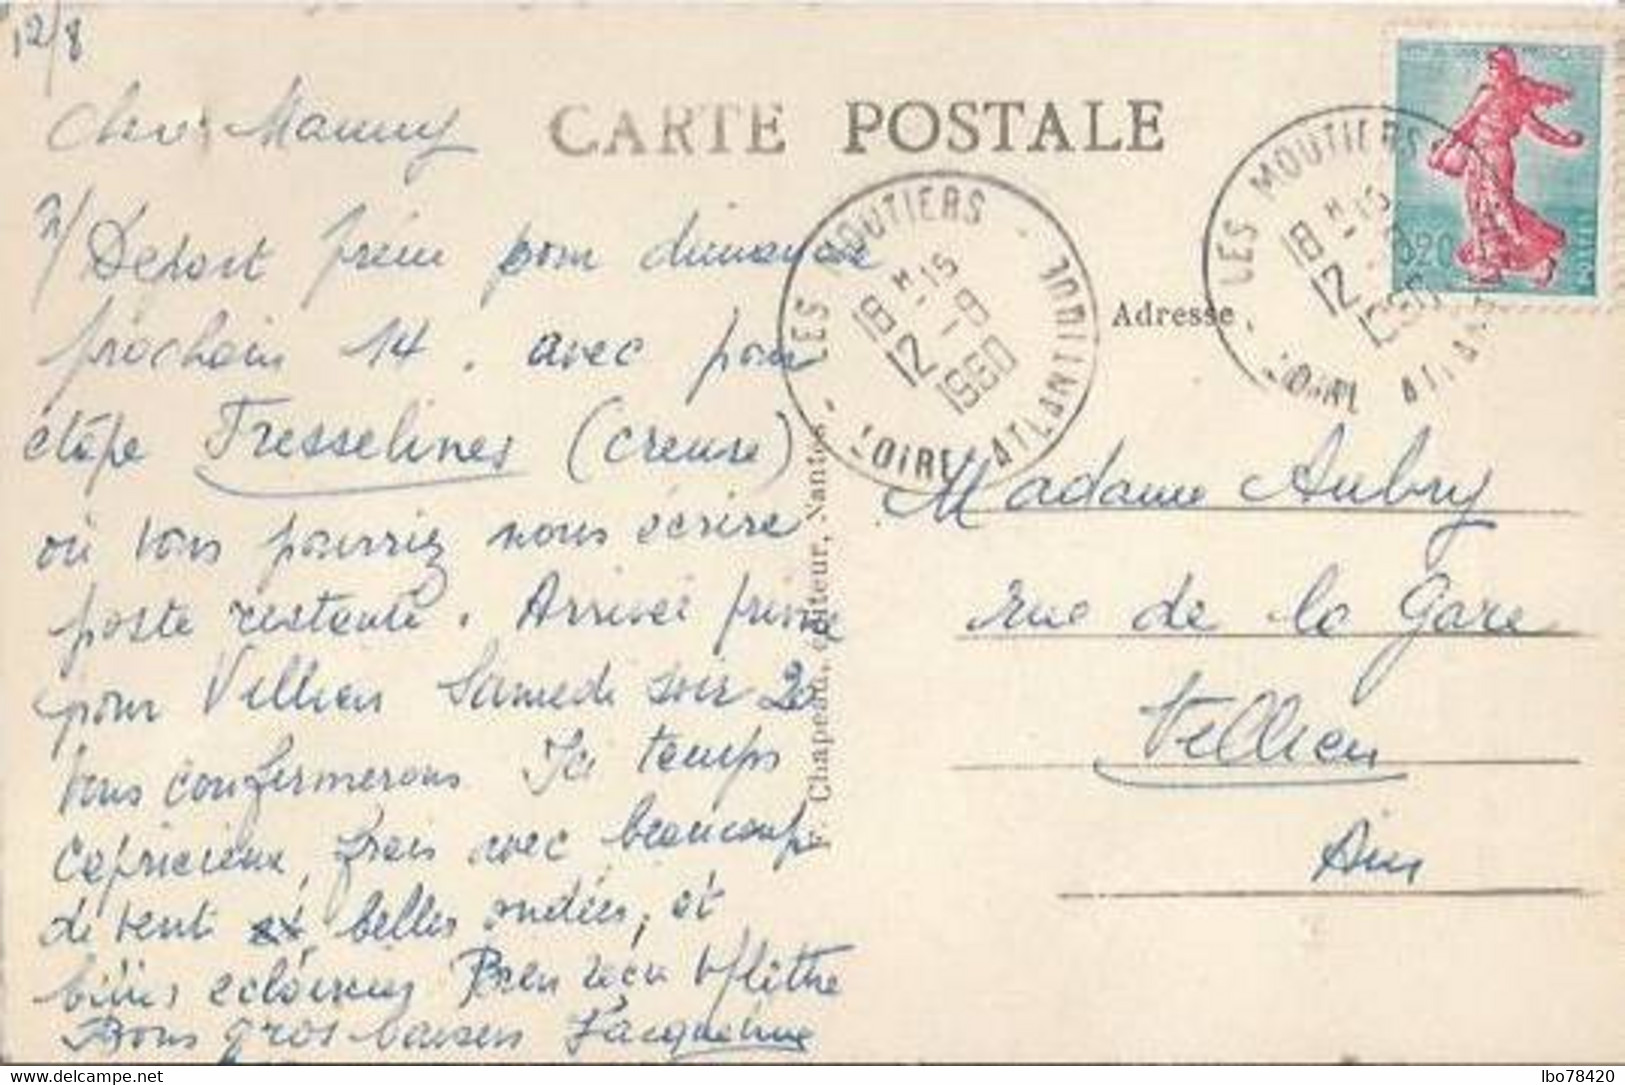 12/8
CARTE POSTALE
Mamy
Départ prévu pour dimanche
prochain 14. avec pour
étape Fresselines (Creuse)
où vous pourriez nous écrire
poste restante. Arrivée prévue
pour Villieu Samedi soir 20
Vous confirmerons Ici temps
capricieux, frais avec beaucoup
de vent et belles ondées, et
éclaircies Bien reçu v/lettre
Bons gros baisers Jacqueline
F. Chapeau, éditeur, Nantes
LES MOUTIERS
18 H 15
12 - 8
1960
LOIRE ATLANTIQUE
LES MOUTIERS
18 H 15
12
1960
LOIRE ATLANT
0,20
Adresse
Madame Aubry
rue de la Gare
Villieu
Ain
delcampe.net
lbo78420